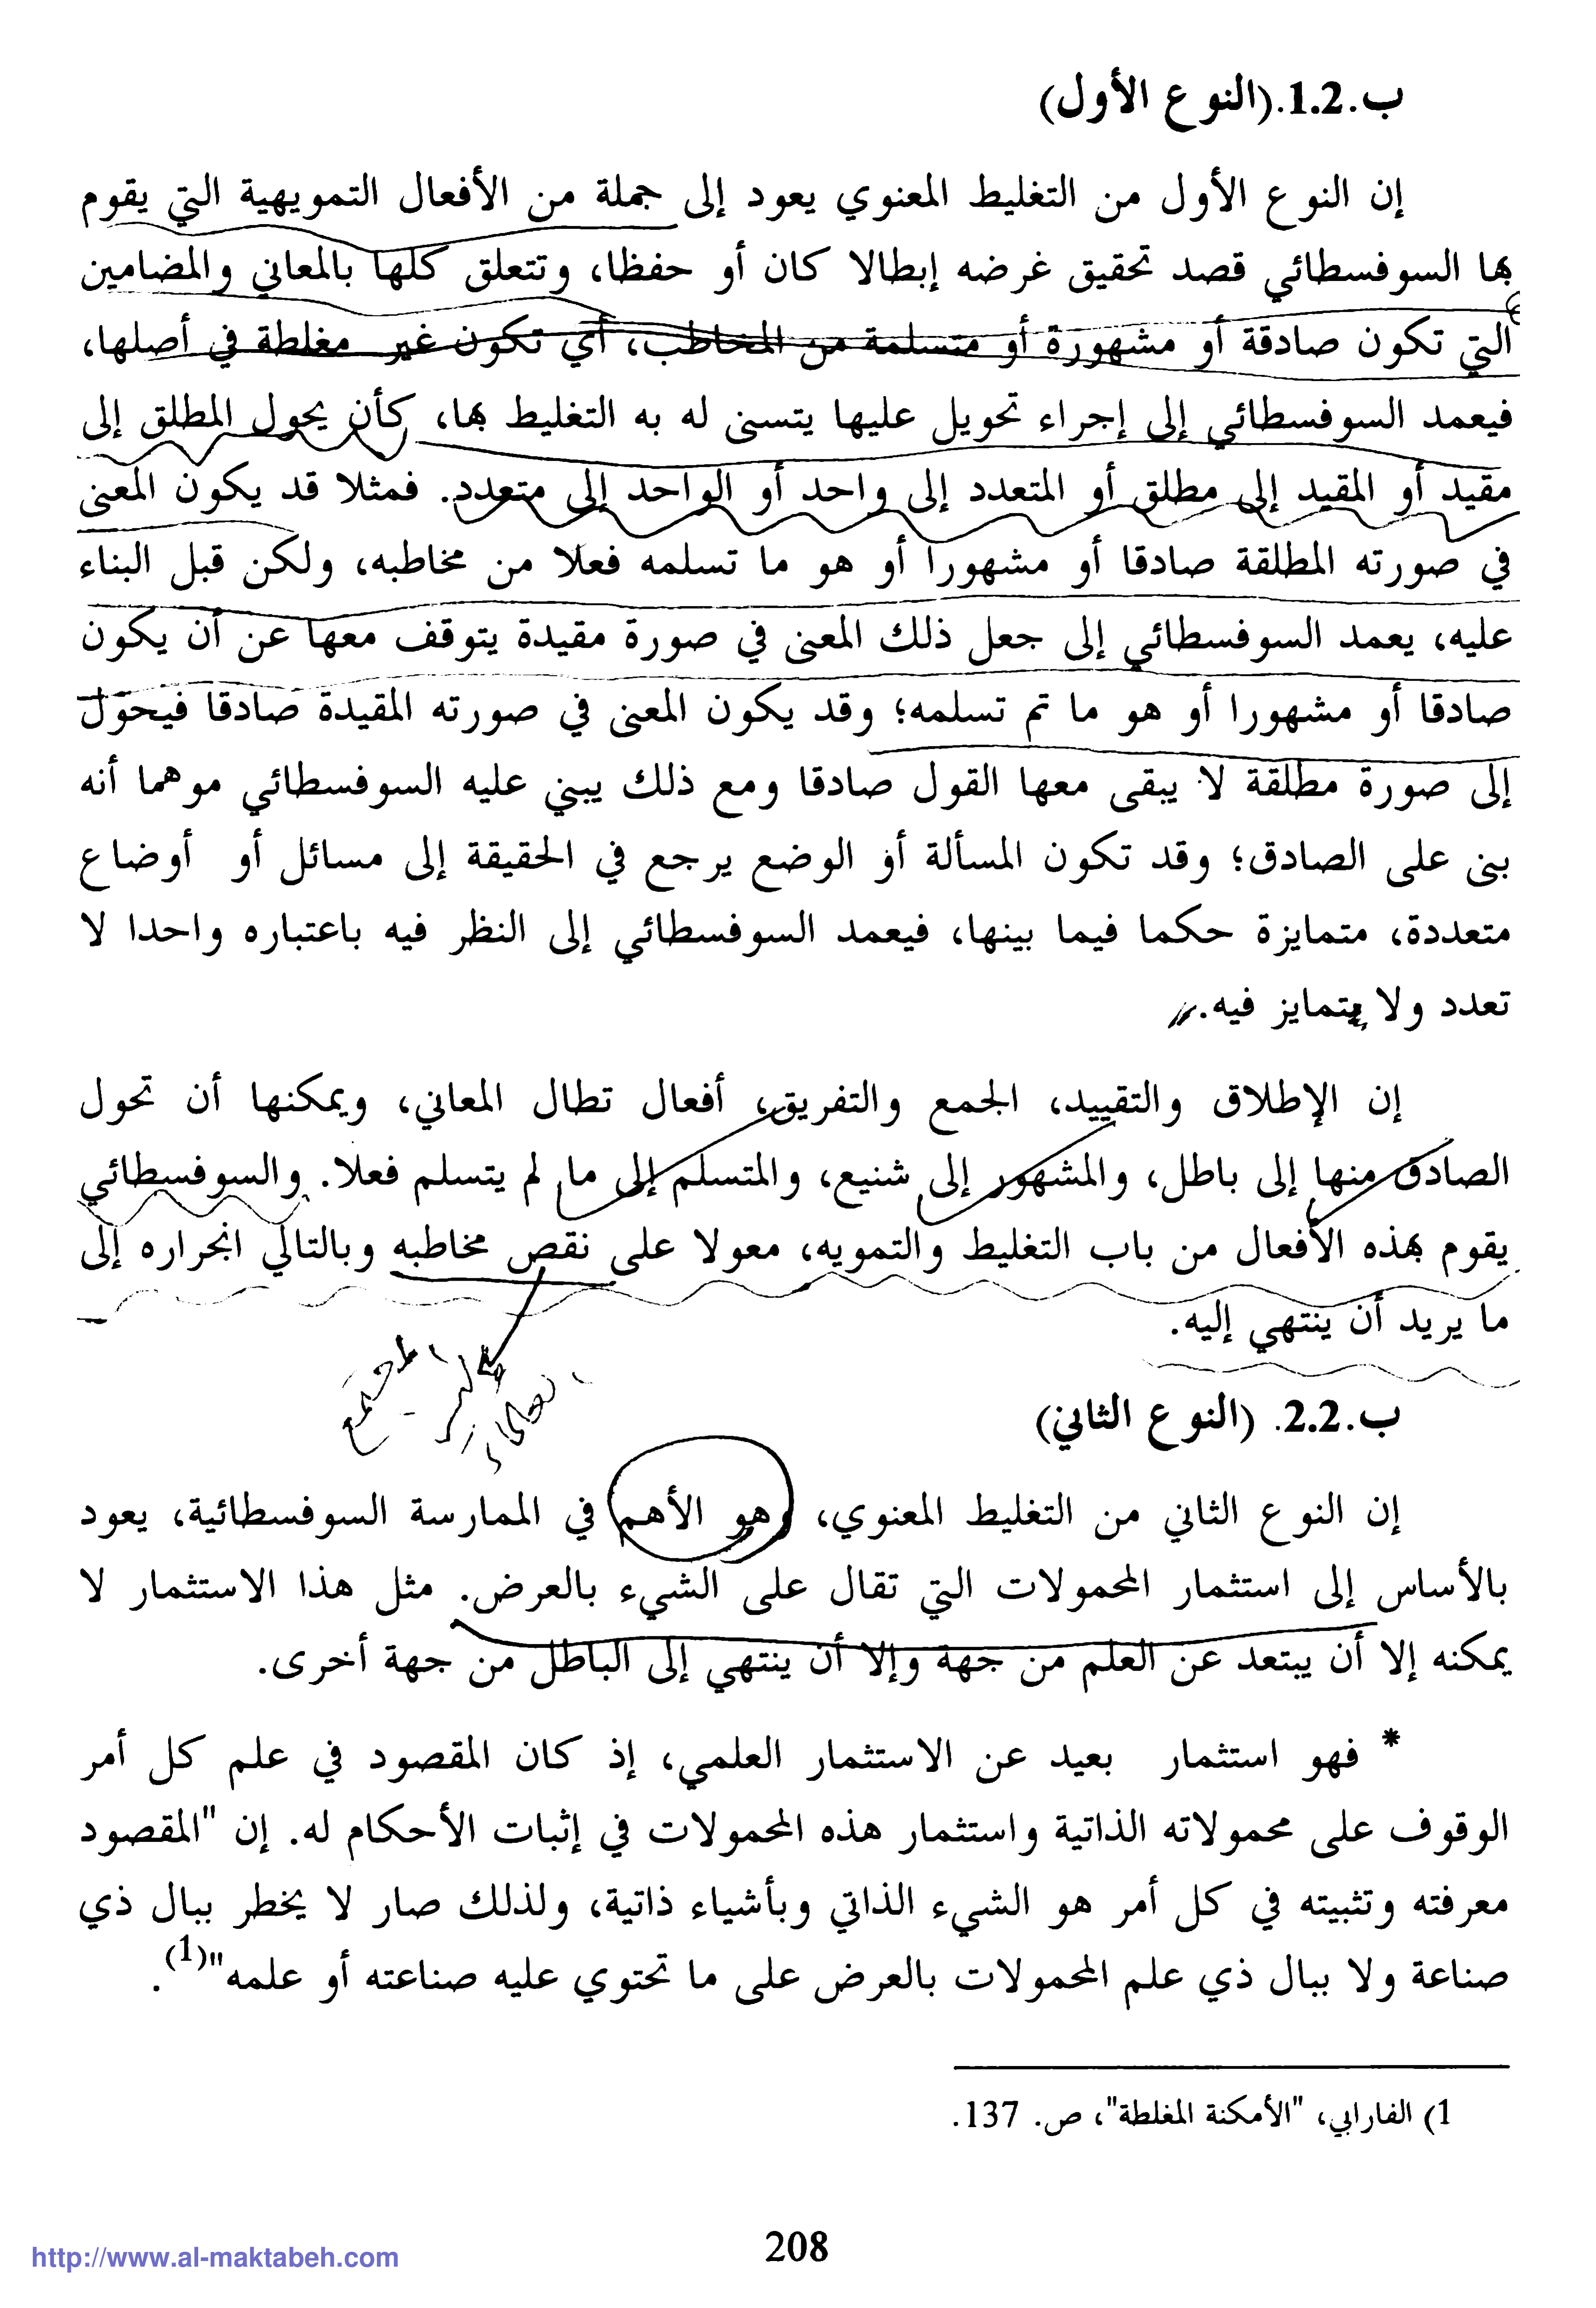 ب.1.2.(النوع الأول)
إن النوع الأول من التغليط المعنوي يعود إلى جملة من الأفعال التمويهية التي يقوم
بها السوفسطائي قصد تحقيق غرضه إبطالا كان أو حفظا، وتتعلق كلها بالمعاني والمضامين
التي تكون صادقة أو مشهورة أو متسلمة من المخاطب، أي تكون غير مغلطة في أصلها،
فيعمد السوفسطائي إلى إجراء تحويل عليها يتسنى له به التغليط بها، كأن يحول المطلق إلى
مقيد أو المقيد إلى مطلق أو المتعدد إلى واحد أو الواحد إلى متعدد. فمثلا قد يكون المعنى
في صورته المطلقة صادقا أو مشهورا أو هو ما تسلمه فعلا من مخاطبه، ولكن قبل البناء
عليه، يعمد السوفسطائي إلى جعل ذلك المعنى في صورة مقيدة يتوقف معها عن أن يكون
صادقا أو مشهورا أو هو ما تم تسلمه؛ وقد يكون المعنى في صورته المقيدة صادقا فيحول
إلى صورة مطلقة لا يبقى معها القول صادقا ومع ذلك يبني عليه السوفسطائي موهما أنه
بنى على الصادق؛ وقد تكون المسألة أو الوضع يرجع في الحقيقة إلى مسائل أو أوضاع
متعددة، متمايزة حكما فيما بينها، فيعمد السوفسطائي إلى النظر فيه باعتباره واحدا لا
تعدد ولا يتمايز فيه.
إن الإطلاق والتقييد، الجمع والتفريق، أفعال تطال المعاني، ويمكنها أن تحول
الصادق منها إلى باطل، والمشهور إلى شنيع، والمتسلم إلى ما لم يتسلم فعلا. والسوفسطائي
يقوم بهذه الأفعال من باب التغليط والتمويه، معولا على نقص مخاطبه وبالتالي انجراره إلى
ما يريد أن ينتهي إليه.
ب.2.2. (النوع الثاني)
إن النوع الثاني من التغليط المعنوي، وهو الأهم في الممارسة السوفسطائية، يعود
بالأساس إلى استثمار المحمولات التي تقال على الشيء بالعرض. مثل هذا الاستثمار لا
يمكنه إلا أن يبتعد عن العلم من جهة وإلا أن ينتهي إلى الباطل من جهة أخرى.
* فهو استثمار بعيد عن الاستثمار العلمي، إذ كان المقصود في علم كل أمر
الوقوف على محمولاته الذاتية واستثمار هذه المحمولات في إثبات الأحكام له. إن "المقصود
معرفته وتثبيته في كل أمر هو الشيء الذاتي وبأشياء ذاتية، ولذلك صار لا يخطر ببال ذي
صناعة ولا ببال ذي علم المحمولات بالعرض على ما تحتوي عليه صناعته أو علمه"(1).
1) الفارابي، "الأمكنة المغلطة"، ص. 137.
208
http://www.al-maktabeh.com